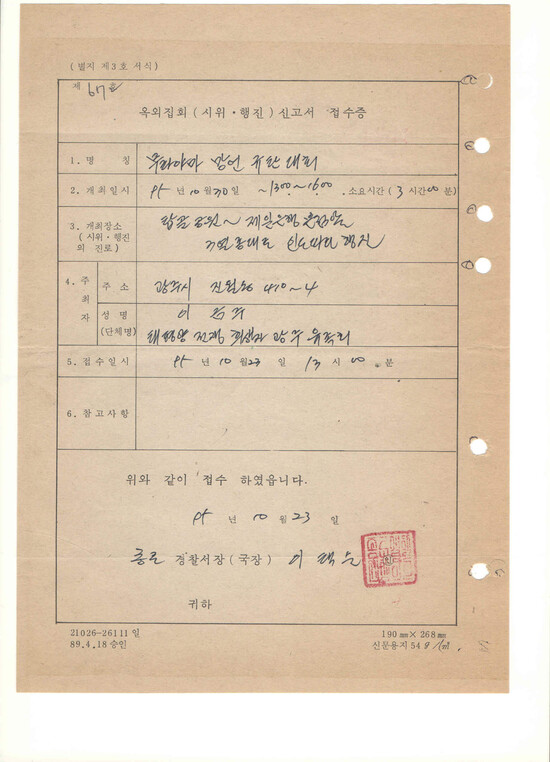 (별지 제3호 서식)
제 617호
옥외집회(시위·행진)신고서 접수증
1. 명 칭 무라야마 망언 규탄 대회
2. 개최일시 95 년 10 월 30 일 ~1300~1600 소요시간(3 시간 00 분)
3. 개최장소 탑골공원~ 제일은행
(시위·행진 인도따라 행진
의 진로)
4. 주최자 주 소 광주시 진월동 410~4
성 명 이 금 주
(단체명) 태평양 전쟁 희생자 광주 유족회
5. 접수일시 95 년 10 월 23 일 13 시 00 분
6. 참고사항
위와 같이 접수 하였읍니다.
95 년 10 월 23 일
종로 경찰서장(국장) 이
귀하
21026-26111 일 190㎜×268㎜
89.4.18 승인 신문용지 54g/㎡